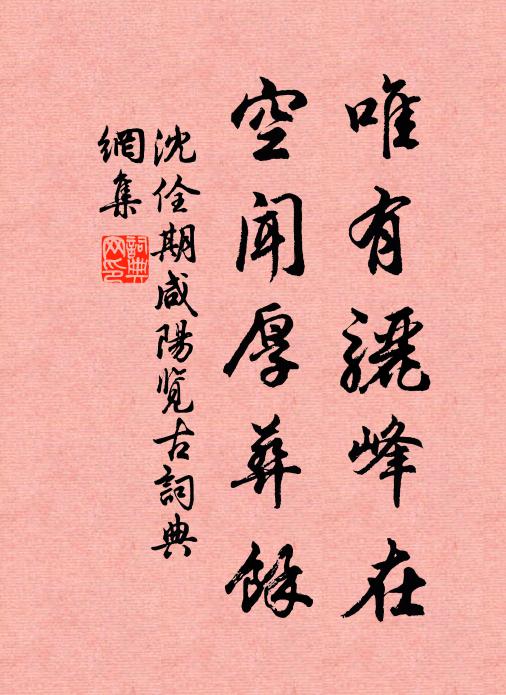 唯有驪峰在
空聞厚葬餘
沈佺期咸陽覽古詞典
網集
詞典網印